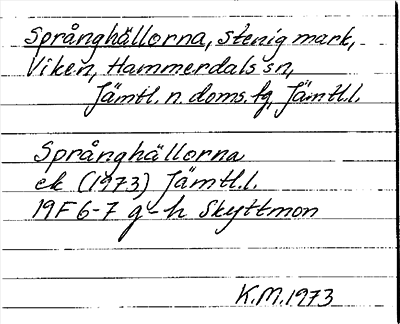 Språnghällorna, stenig mark,
Viken, Hammerdals sn,
Jämtl. n. doms. fg, Jämtl.l.
Språnghällorna
ek (1973) Jämtl.l.
19F 6-7 g-h Skyttmon
K.M.1973